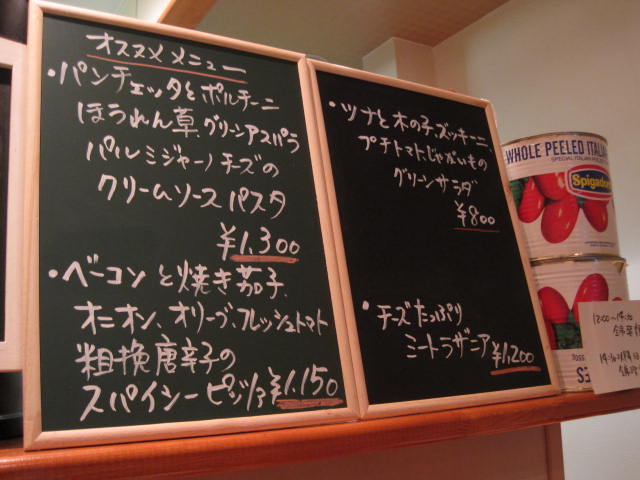 オススメメニュー
・パンチェッタとポルチーニ
ほうれん草、グリーンアスパラ
パルミジャーノチーズの
クリームソースパスタ
¥1,300
・ベーコンと焼き茄子、
オニオン、オリーブ、フレッシュトマト
粗挽唐辛子の
スパイシーピッツァ¥1,150
・ツナと木の子、ズッキーニ
プチトマト、じゃがいもの
グリーンサラダ
¥800
・チーズたっぷり
ミートラザニア¥1,200
WHOLE PEELED ITAL
SPECIAL ITALIAN
Spigador
12:00~14: